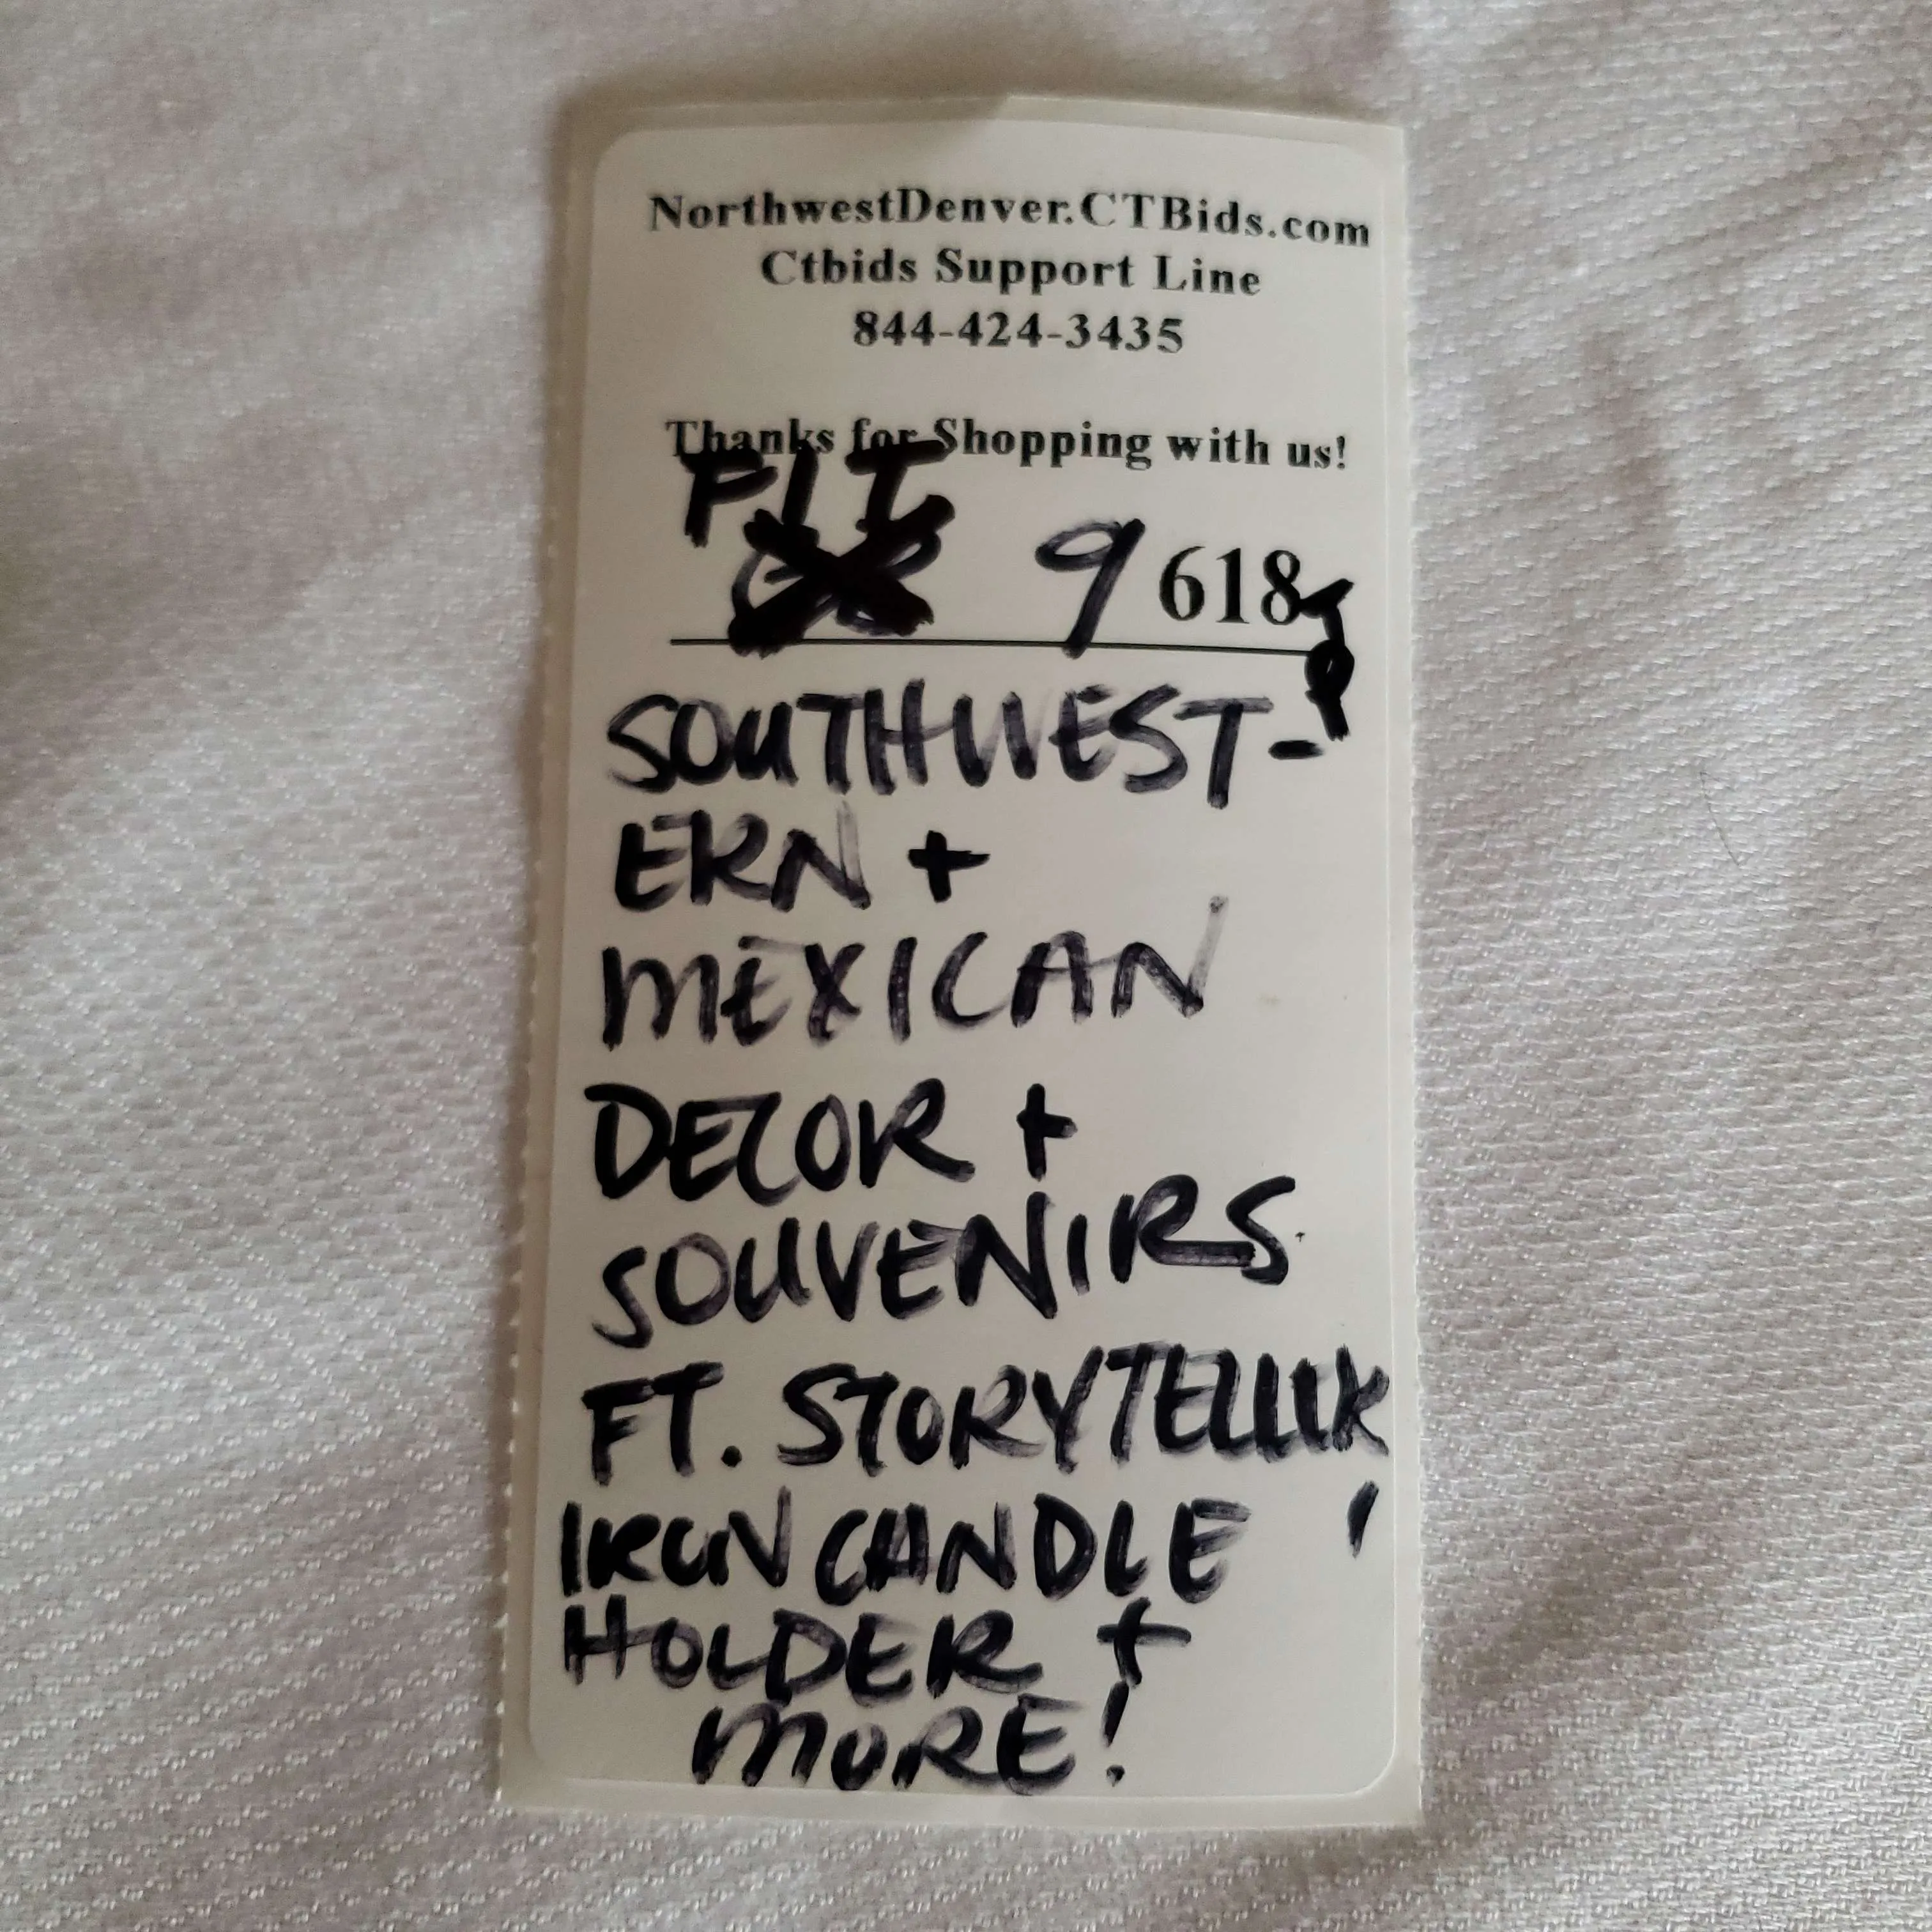 NorthwestDenver.CTBids.com
Ctbids Support Line
844-424-3435
Thanks for Shopping with us!
9 618
SOUTHWEST-
ERN +
MEXICAN
DECOR +
SOUVENIRS
FT. STORYTELLER,
IRON CANDLE
HOLDER +
MORE!